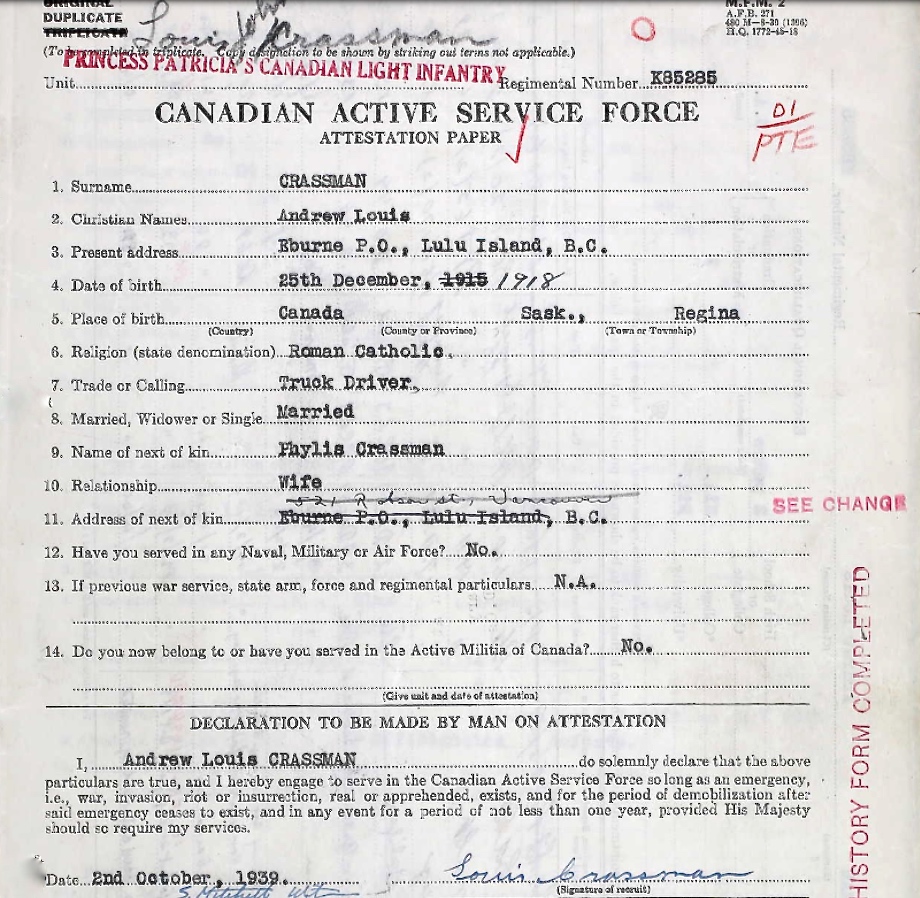 ORIGINAL
DUPLICATE
TRIPLICATE
Louis John Crassman
M.F.M. 2
A.F.B. 271
480 M—8-39 (1396)
H.Q. 1772-45-18
(To be completed in triplicate. Copy designation to be shown by striking out terms not applicable.)
PRINCESS PATRICIA'S CANADIAN LIGHT INFANTRY
Unit Regimental Number K85285
CANADIAN ACTIVE SERVICE FORCE
ATTESTATION PAPER
D1
PTE
1. Surname CRASSMAN
2. Christian Names Andrew Louis
3. Present address Eburne P.O., Lulu Island, B.C.
4. Date of birth 25th December, 1915 1918
5. Place of birth Canada Sask., Regina
(Country) (County or Province) (Town or Township)
6. Religion (state denomination) Roman Catholic.
7. Trade or Calling Truck Driver.
8. Married, Widower or Single Married
9. Name of next of kin Phylis Crassman
10. Relationship Wife
521 Robson st, Vancouver
SEE CHANGE
11. Address of next of kin Eburne P.O., Lulu Island, B.C.
12. Have you served in any Naval, Military or Air Force? No.
13. If previous war service, state arm, force and regimental particulars N.A.
14. Do you now belong to or have you served in the Active Militia of Canada? No.
(Give unit and date of attestation)
DECLARATION TO BE MADE BY MAN ON ATTESTATION
I, Andrew Louis CRASSMAN do solemnly declare that the above
particulars are true, and I hereby engage to serve in the Canadian Active Service Force so long as an emergency,
i.e., war, invasion, riot or insurrection, real or apprehended, exists, and for the period of demobilization after
said emergency ceases to exist, and in any event for a period of not less than one year, provided His Majesty
should so require my services.
Date 2nd October, 1939. Louis Crassman
(Signature of recruit)
HISTORY FORM COMPLETED